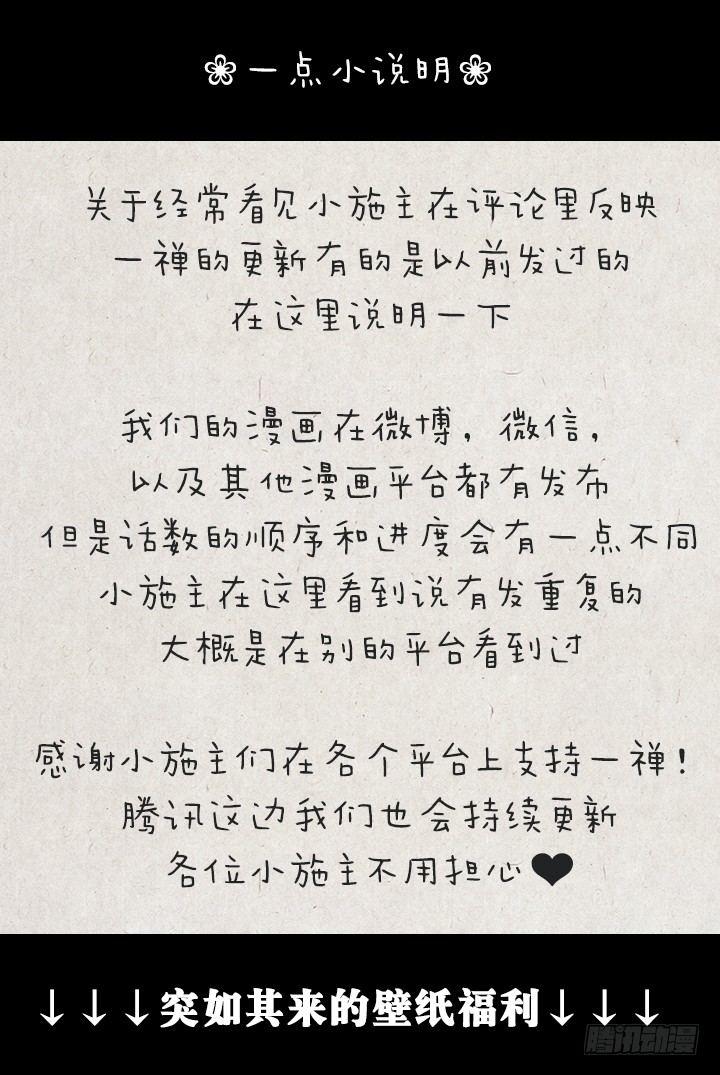 ❀一点小说明❀
关于经常看见小施主在评论里反映
一禅的更新有的是以前发过的
在这里说明一下
我们的漫画在微博，微信，
以及其他漫画平台都有发布
但是话数的顺序和进度会有一点不同
小施主在这里看到说有发重复的
大概是在别的平台看到过
感谢小施主们在各个平台上支持一禅！
腾讯这边我们也会持续更新
各位小施主不用担心❤
↓↓↓突如其来的壁纸福利↓↓↓
腾讯动漫